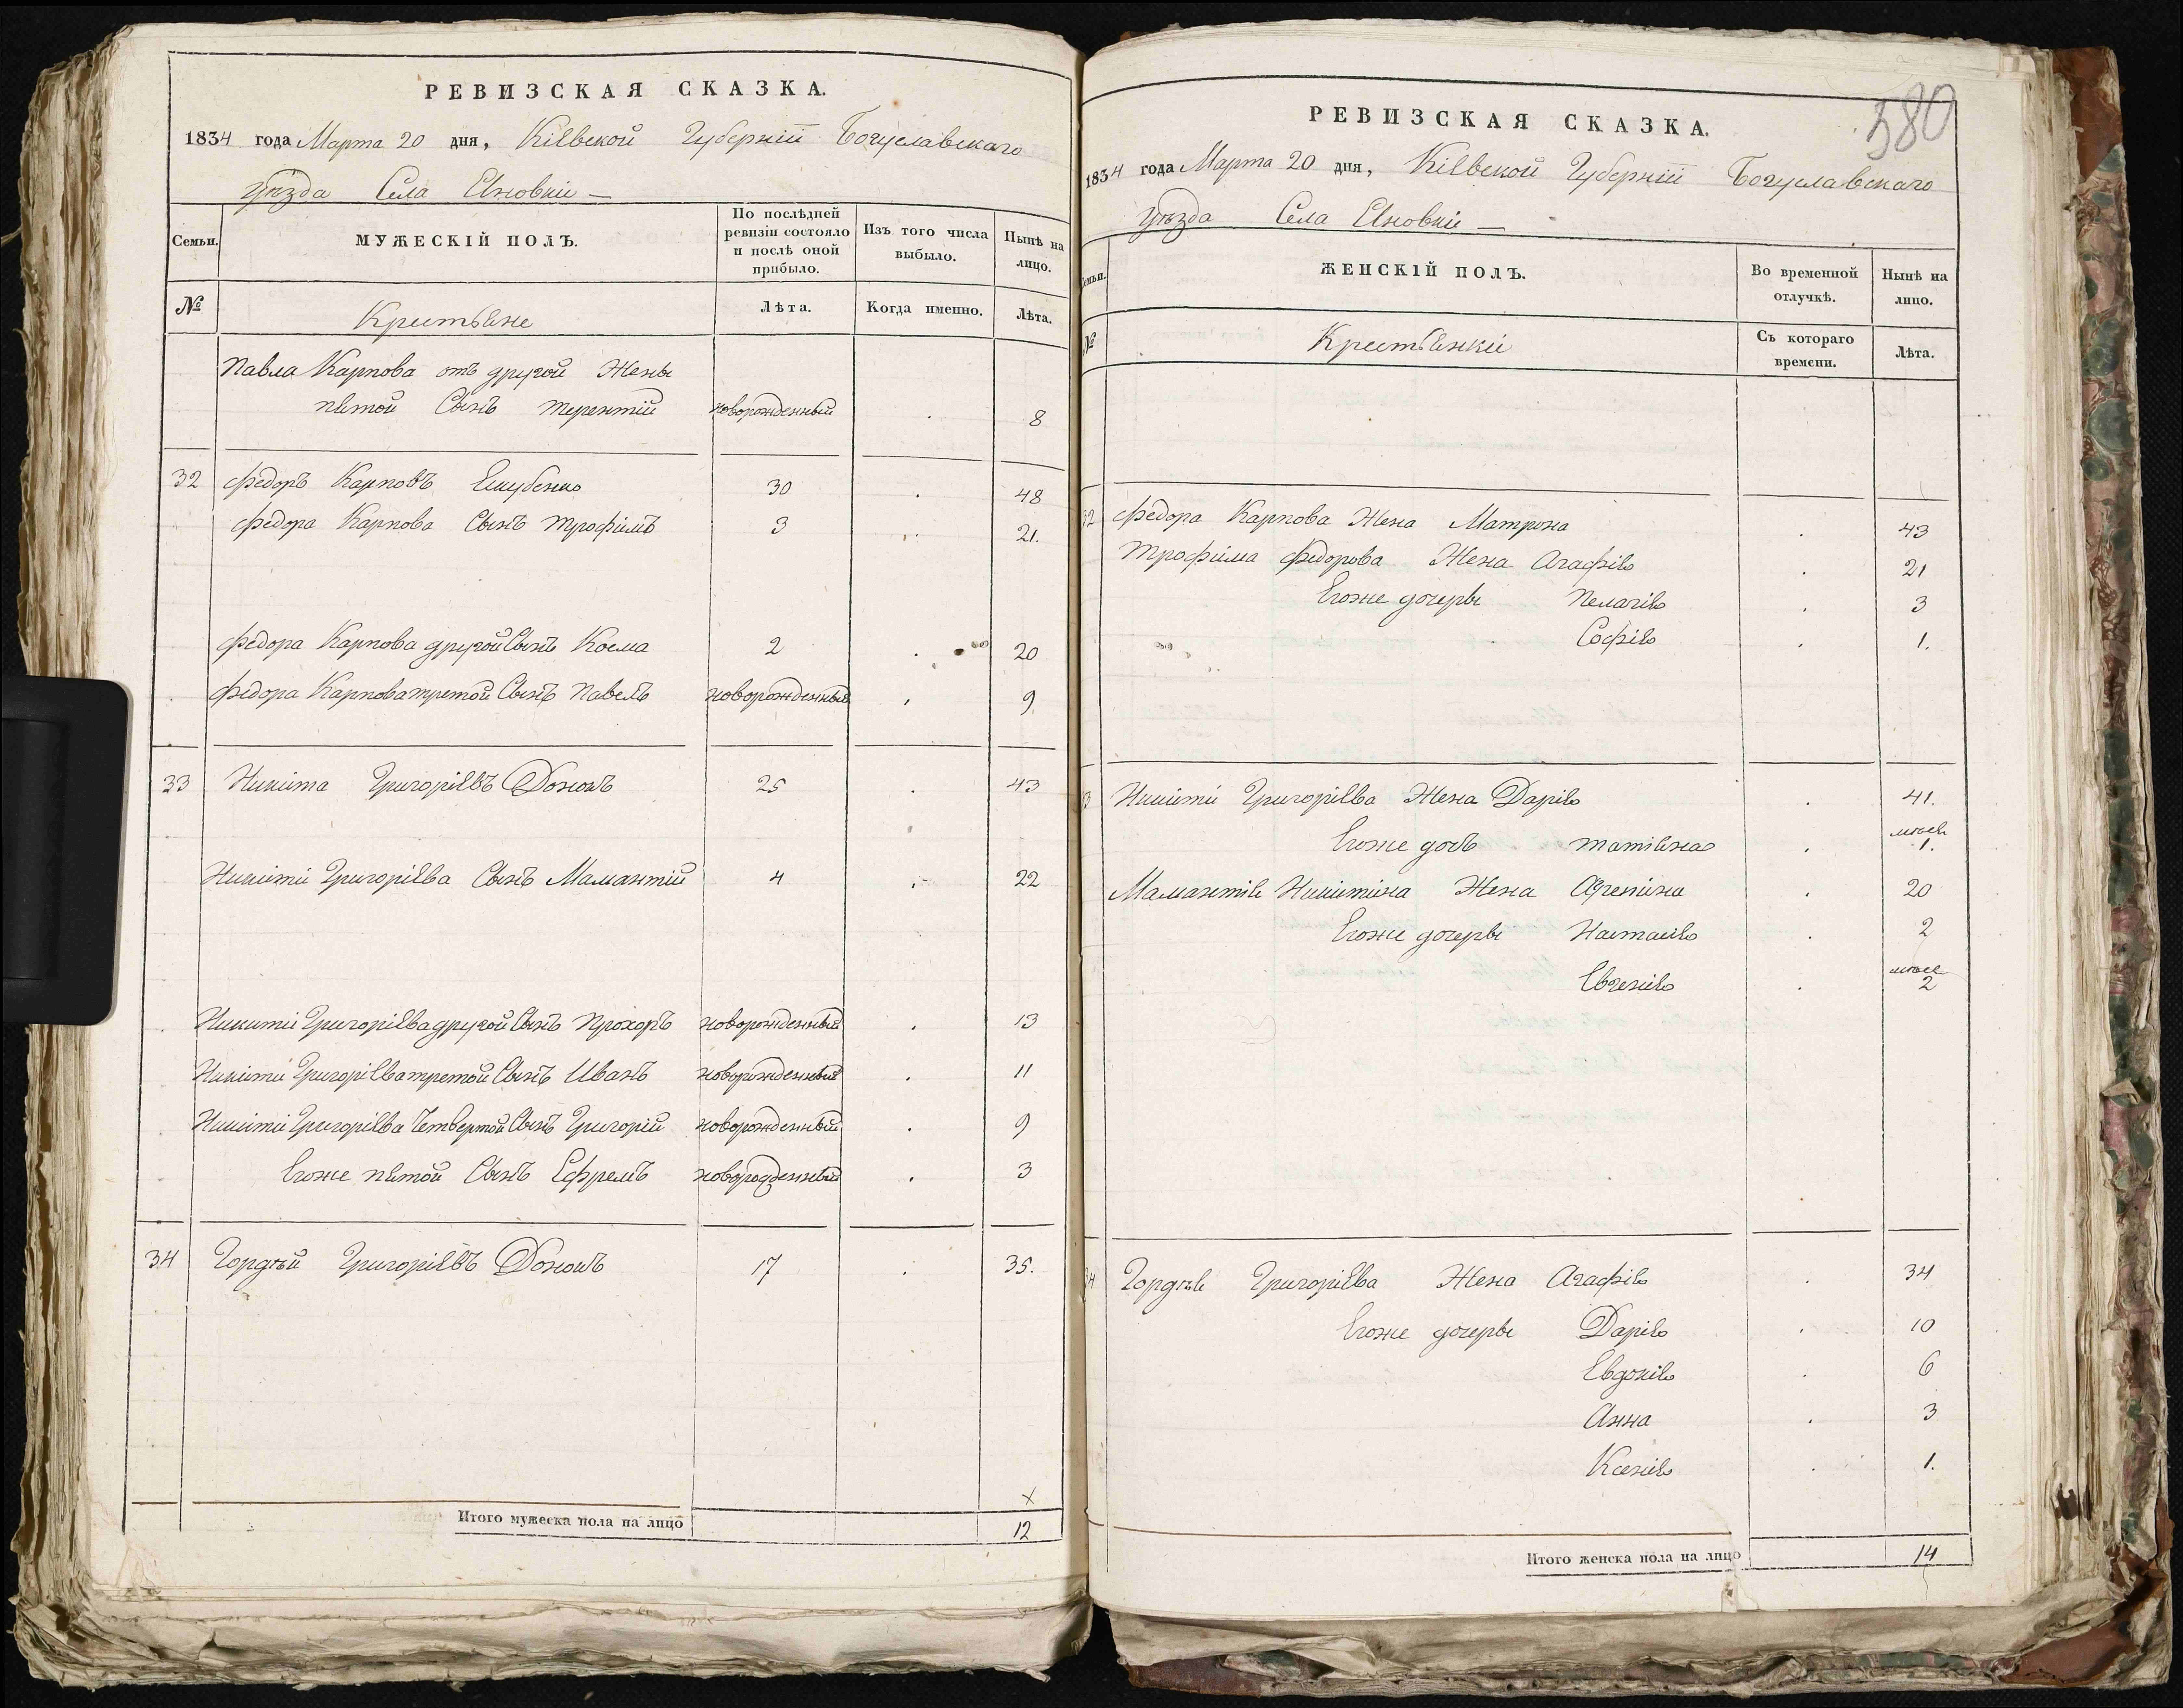 РЕВИЗСКАЯ СКАЗКА.
1834 года Марта 20 дня, Кіевской Губерніи Богуславскаго
уѣзда Села Яновки —
Семьи.
МУЖЕСКІЙ ПОЛЪ.
По послѣдней ревизіи состояло и послѣ оной прибыло.
Изъ того числа выбыло.
Нынѣ на лицо.
№
Крестьяне
Лѣта.
Когда именно.
Лѣта.
Павла Карпова отъ другой Жены
пятой Сынъ Терентій новорожденный 8
32 Федоръ Карповъ 30 48
Федора Карпова Сынъ Трофимъ 3 21.
Федора Карпова другой Сынъ Косма 2 20
Федора Карпова третой Сынъ Павелъ новорожденный 9
33 Никита Григоріевъ Доношъ 25 43
Никиты Григоріева Сынъ Мамантій 4 22
Никиты Григоріева другой Сынъ Прохоръ новорожденный 13
Никиты Григоріева третой Сынъ Иванъ новорожденный 11
Никиты Григоріева Четвертой Сынъ Григорій новорожденный 9
Егоже пятой Сынъ Ефремъ новорожденный 3
34 Гордѣй Григоріевъ Доношъ 17 35.
Итого мужеска пола на лицо 12
580
РЕВИЗСКАЯ СКАЗКА.
1834 года Марта 20 дня, Кіевской Губерніи Богуславскаго
уѣзда Села Яновки —
Семьи.
ЖЕНСКІЙ ПОЛЪ.
Во временной отлучкѣ.
Нынѣ на лицо.
№
Крестьянки
Съ котораго времени.
Лѣта.
32 Федора Карпова Жена Матрона 43
Трофима Федорова Жена Агафія 21
Егоже дочеры Пелагія 3
Софія 1.
33 Никиты Григоріева Жена Дарія 41.
Егоже дочь Татіяна 1.
Мамантія Никитина Жена Агрепина 20
Егоже дочеры Настасія 2
Евгенія 2
34 Гордѣя Григоріева Жена Агафія 34
Егоже дочеры Дарія 10
Евдокія 6
Анна 3
Ксенія 1.
Итого женска пола на лицо 14